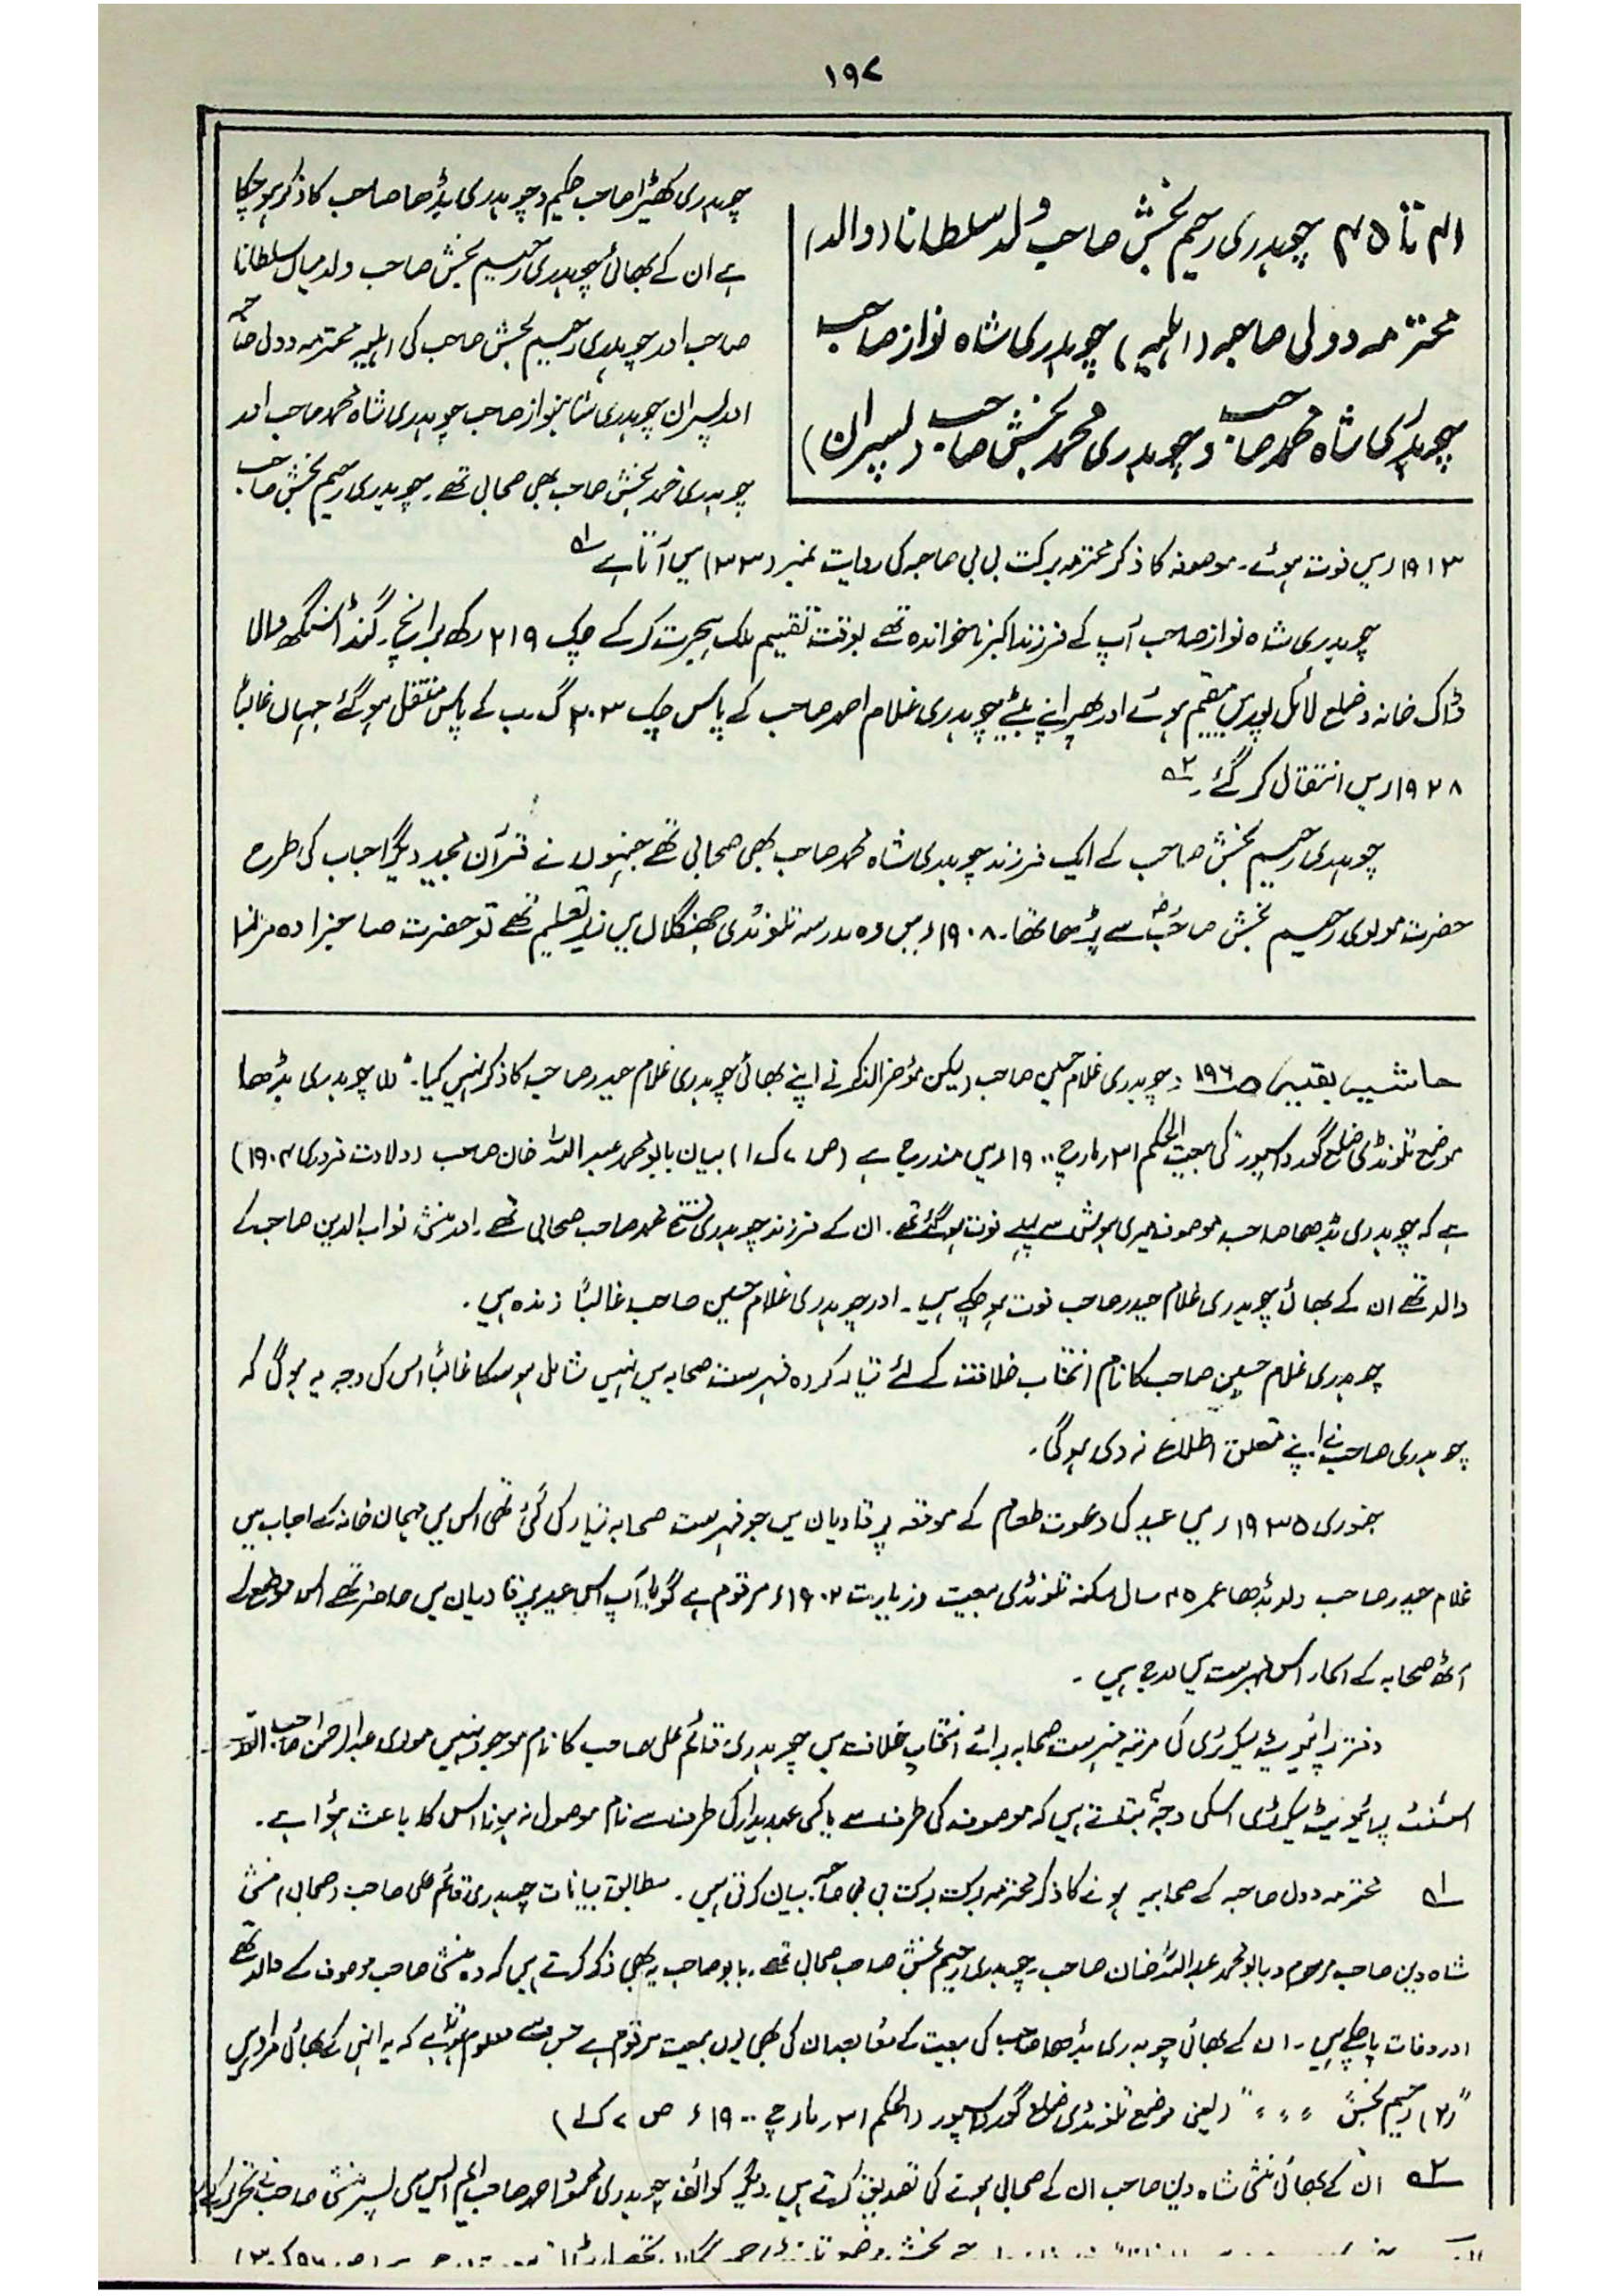 ۱۹۷
۴۱ تا ۴۵ چوہدری رحیم بخش صاحب ولد سلطانا (والد)
محترمہ دولی صاحبہ (اہلیہ) چوہدری شاہ نواز صاحب
چوہدری شاہ محمد صاحب و چوہدری محمد بخش صاحب (پسران)
چوہدری کھیڑا صاحب حکیم و چوہدری بڈھا صاحب کا ذکر ہو چکا
ہے ان کے بھائی چوہدری رحیم بخش صاحب ولد میاں سلطانا
صاحب اور چوہدری رحیم بخش صاحب کی اہلیہ محترمہ دولی صاحبہ
اور پسران چوہدری شاہنواز صاحب چوہدری شاہ محمد صاحب اور
چوہدری محمد بخش صاحب بھی صحابی تھے۔ چوہدری رحیم بخش صاحب
۱۹۱۳ء میں فوت ہوئے۔ موصوفہ کا ذکر محترمہ برکت بی بی صاحبہ کی روایت نمبر (۳۳) میں آتا ہے ؎۱
چوہدری شاہ نواز صاحب آپ کے فرزند اکبر ناخواندہ تھے بوقت تقسیم ملک ہجرت کر کے چک ۲۱۹ رکھ برانچ گنڈا سنگھ والا
ڈاک خانہ و ضلع لائل پور میں مقیم ہوئے اور پھر اپنے بیٹے چوہدری غلام احمد صاحب کے پاس چک ۲۰۳ گ ب کے پاس منتقل ہو گئے جہاں غالباً
۱۹۲۸ء میں انتقال کر گئے۔ ؎۲
چوہدری رحیم بخش صاحب کے ایک فرزند چوہدری شاہ محمد صاحب بھی صحابی تھے جنہوں نے قرآن مجید دیگر احباب کی طرح
حضرت مولوی رحیم بخش صاحبؓ سے پڑھا تھا۔ ۱۹۰۸ء میں وہ مدرسہ تلونڈی جھنگلاں میں زیر تعلیم تھے تو حضرت صاحبزادہ مرزا
حاشیہ بقیہ ص ۱۹۶: چوہدری غلام حسین صاحب (لیکن مؤخر الذکر نے اپنے بھائی چوہدری غلام حیدر صاحب کا ذکر نہیں کیا۔ "(۱) چوہدری بڈھا
موضع تلونڈی ضلع گورداسپور" کی بیعت الحکم ۳۱ مارچ ۱۹۰۰ء میں مندرج ہے (ص ۷ ک ۱) بیان بابو محمد عبد اللہ خان صاحب (ولادت فروری ۱۹۰۴)
ہے کہ چوہدری بڈھا صاحب موصوف میری ہوش سے پہلے فوت ہو گئے تھے۔ ان کے فرزند چوہدری فتح محمد صاحب صحابی تھے۔ اور منشی نواب الدین صاحب کے
والد تھے ان کے بھائی چوہدری غلام حیدر صاحب فوت ہو چکے ہیں۔ اور چوہدری غلام حسین صاحب غالباً زندہ ہیں۔
چوہدری غلام حسین صاحب کا نام انتخاب خلافت کے لئے تیار کردہ فہرست صحابہ میں نہیں شامل ہو سکا غالباً اس کی وجہ یہ ہوگی کہ
چوہدری صاحب نے اپنے متعلق اطلاع نہ دی ہوگی۔
جنوری ۱۹۳۵ء میں عید کی دعوت طعام کے موقعہ پر قادیان میں جو فہرست صحابہ تیار کی گئی تھی اس میں مہمان خانہ کے احباب میں
غلام حیدر صاحب ولد بڈھا عمر ۴۵ سال سکنہ تلونڈی بیعت و زیارت ۱۹۰۲ء مرقوم ہے گویا آپ اس عید پر قادیان میں حاضر تھے اس موضع کے
آٹھ صحابہ کے اسماء اس فہرست میں درج ہیں۔
دفتر پرائیویٹ سیکرٹری کی مرتبہ فہرست صحابہ برائے انتخاب خلافت میں چوہدری قائم علی صاحب کا نام موجود نہیں مولوی عبد الرحمن صاحب انور
اسسٹنٹ پرائیویٹ سیکرٹری اسکی وجہ یہ بتلاتے ہیں کہ موصوف کی طرف سے یا کسی عہدیدار کی طرف سے نام موصول نہ ہونا اس کا باعث ہوا ہے۔
؎۱ محترمہ دولی صاحبہ کے صحابیہ ہونے کا ذکر محترمہ برکت برکت بی بی صاحبہ بیان کرتی ہیں۔ مطابق بیانات چوہدری قائم علی صاحب (صحابی) منشی
شاہ دین صاحب مرحوم و بابو محمد عبد اللہ خان صاحب۔ چوہدری رحیم بخش صاحب صحابی تھے۔ بابو صاحب یہ بھی ذکر کرتے ہیں کہ وہ منشی صاحب موصوف کے والد تھے
اور وفات پا چکے ہیں۔ ان کے بھائی چوہدری بڈھا صاحب کی بیعت کے معاً بعد ان کی بھی یوں بیعت مرقوم ہے جس سے معلوم ہوتا ہے کہ یہ انہی کے بھائی مراد ہیں
"(۲) رحیم بخش ״ ״ ״" (یعنی موضع تلونڈی ضلع گورداسپور (الحکم ۳۱ مارچ ۱۹۰۰ء ص ۷ ک ۱)
؎۲ ان کے بھائی منشی شاہ دین صاحب ان کے صحابی ہونے کی تصدیق کرتے ہیں۔ دیگر کوائف چوہدری محمود احمد صاحب ایم ایس سی پسر منشی صاحب نے تحریر کئے